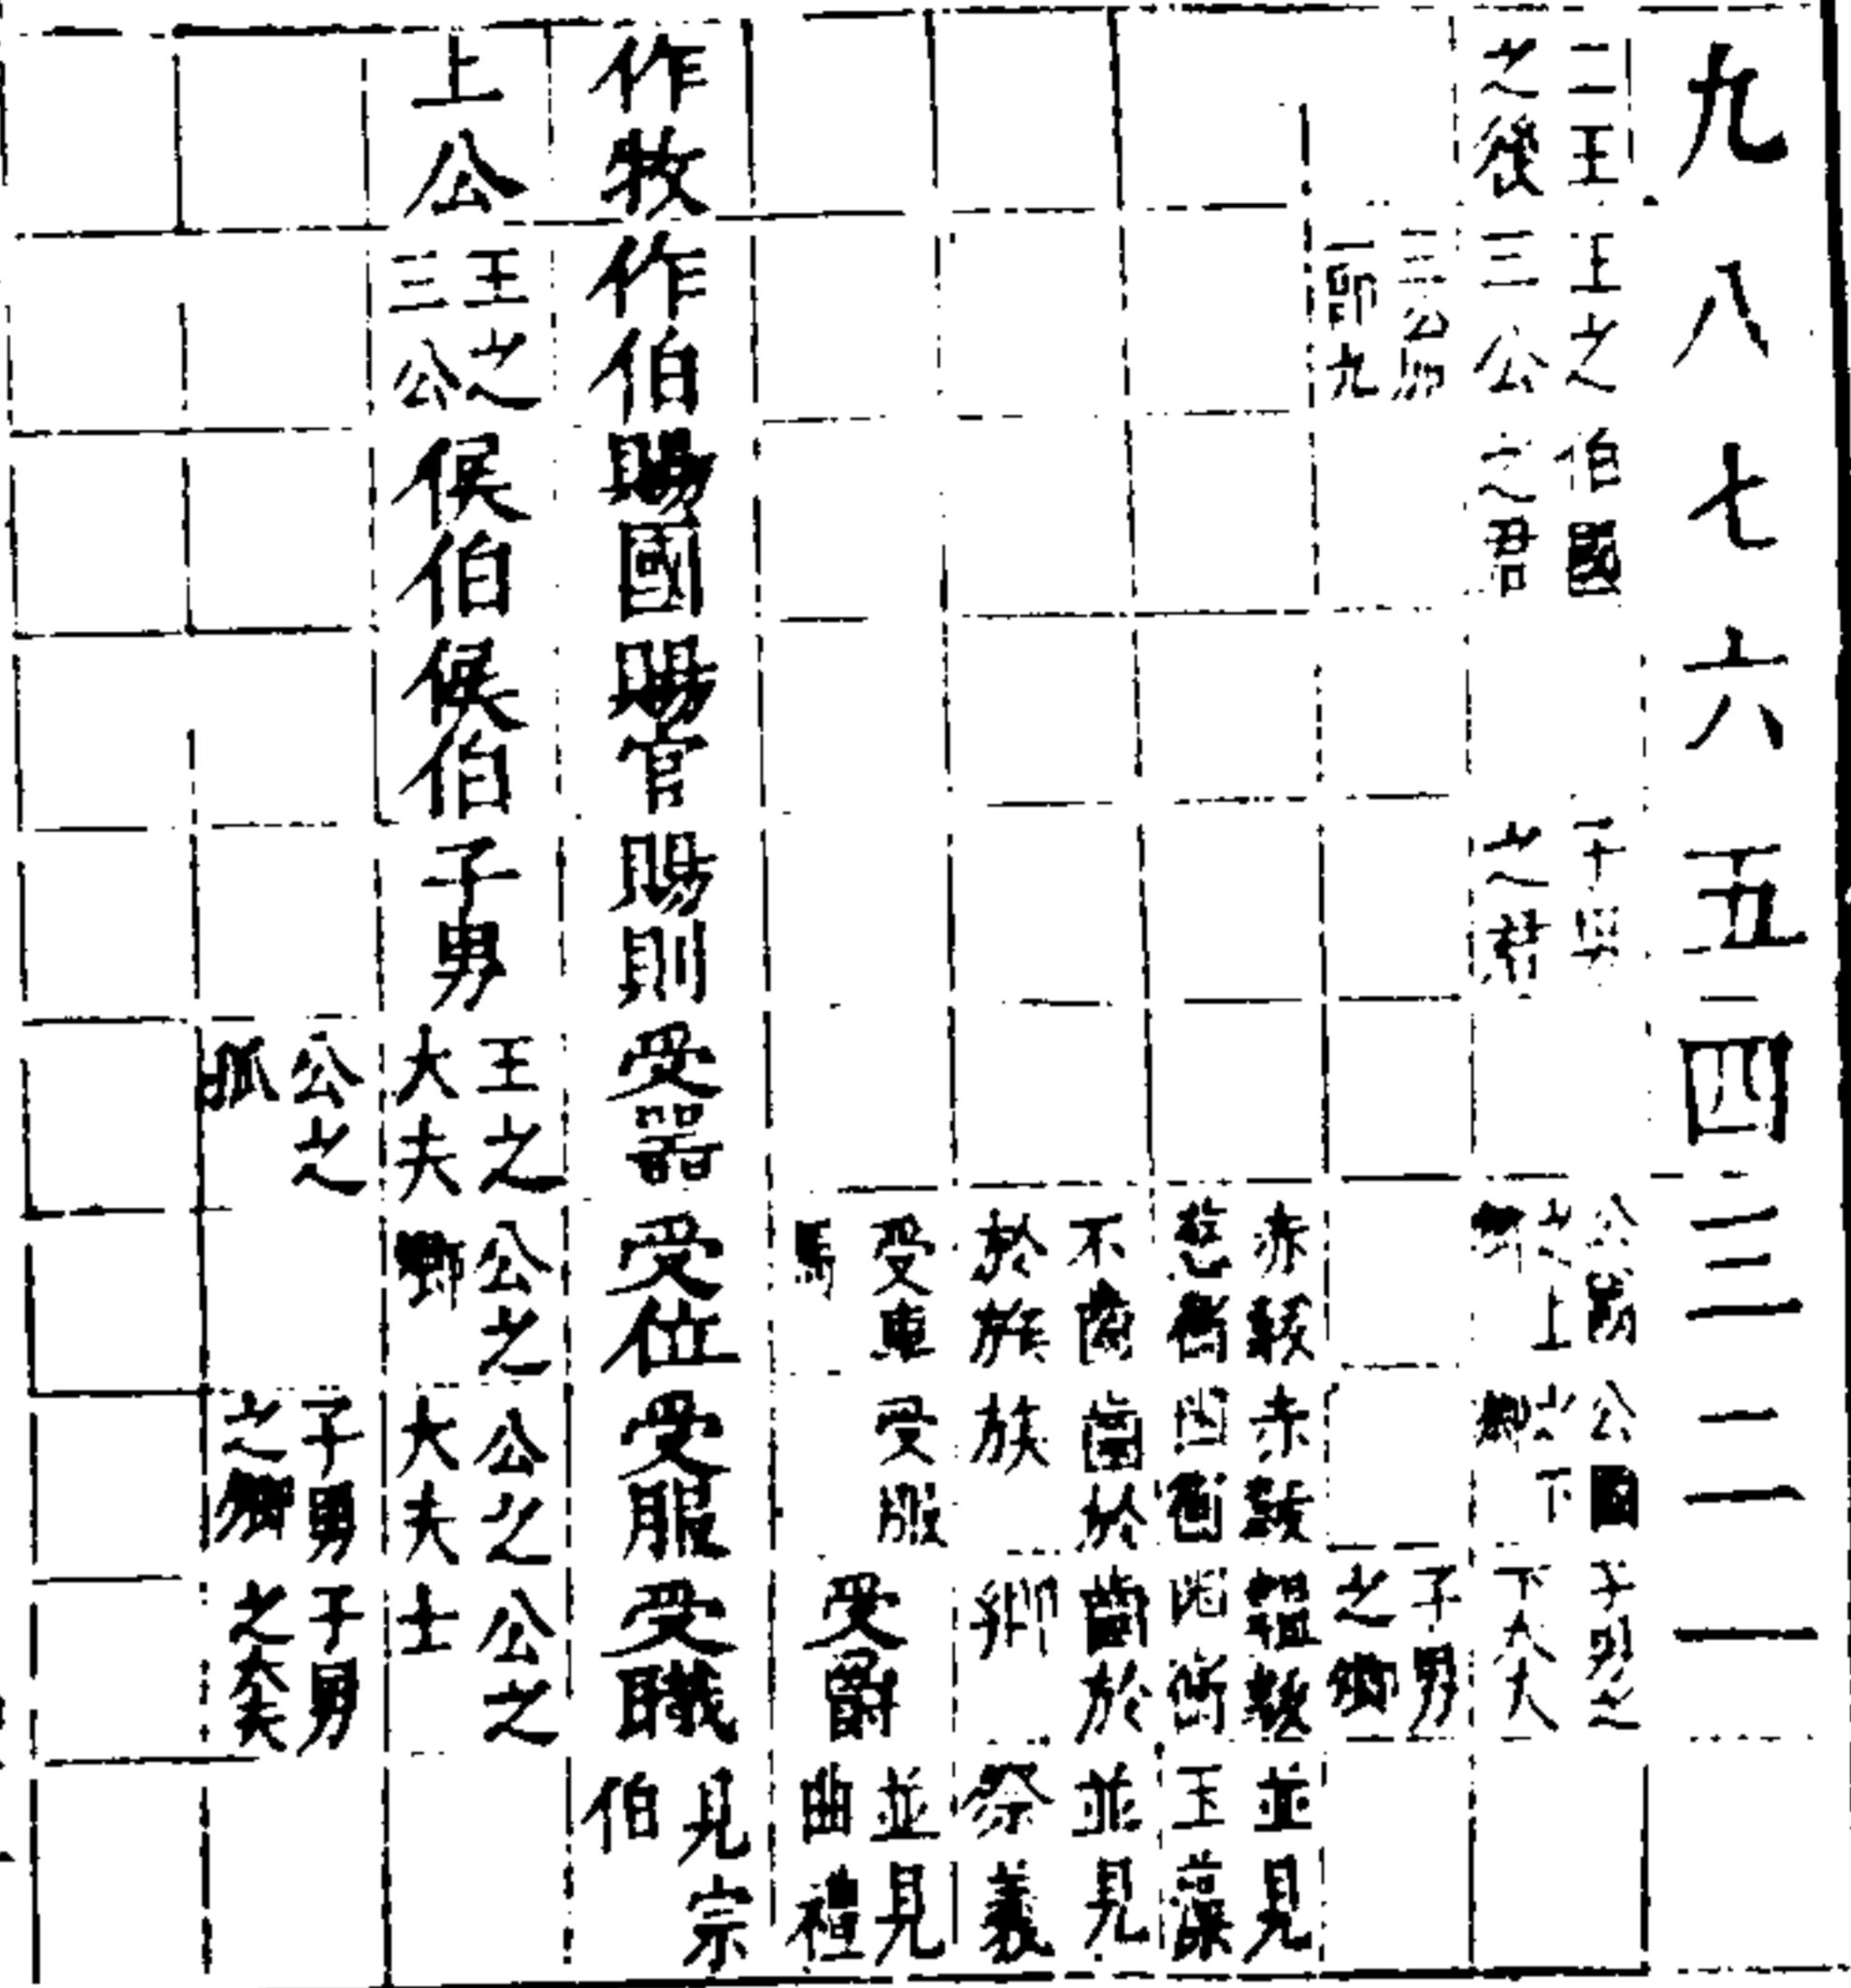 九八七六五四三二一
二王之後
王之三公
伯國之君
子男之君
公國之上卿
公國之下卿
子男之下大夫
三公加一命九
子男之卿
赤韍蔥衡
赤韍幽衡
縕韍幽衡
並見玉藻
不齒於族
齒於族
齒於鄉
並見祭義
受車馬
受服
受爵
並見曲禮
作牧
作伯
賜國
賜官
賜則
受器
受位
受服
受職
見宗伯
上公
王之三公
侯伯
侯伯
子男
王之大夫
公之卿
公之大夫
公之士
公之孤
子男之卿
子男之大夫